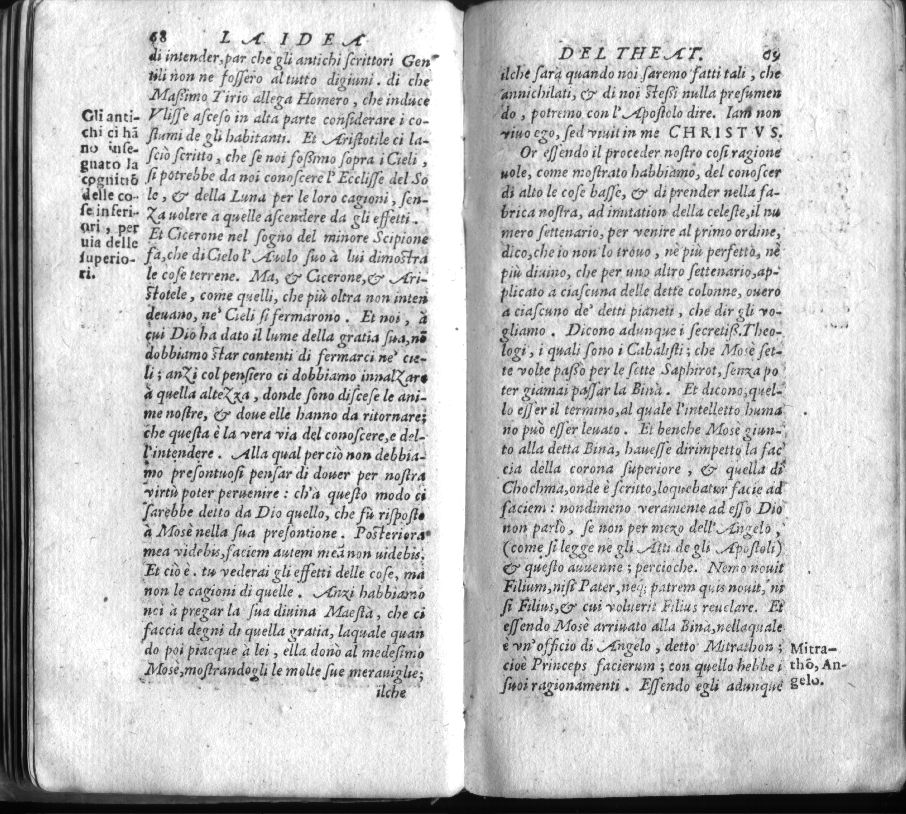 68 LA IDEA
di intender, par che gli antichi ſcrittori Gen
tili non ne foſſero al tutto digiuni. di che
Maſsimo Tirio allega Homero, che induce
Vliſſe aſceſo in alta parte conſiderare i co-
ſtumi de gli habitanti. Et Ariſtotile ci la-
ſciò ſcritto, che ſe noi foſsimo ſopra i Cieli,
ſi potrebbe da noi conoſcere l'Eccliſſe del So
le, & della Luna per le loro cagioni, ſen-
za uolere a quelle aſcendere da gli effetti.
Et Cicerone nel ſogno del minore Scipione
fa, che di Cielo l'Auolo ſuo à lui dimoſtra
le coſe terrene. Ma, & Cicerone, & Ari-
ſtotele, come quelli, che più oltra non inten
deuano, ne' Cieli ſi fermarono. Et noi, à
cui Dio ha dato il lume della gratia ſua, nō
dobbiamo ſtar contenti di fermarci ne' cie-
li; anzi col penſiero ci dobbiamo innalzare
à quella altezza, donde ſono diſceſe le ani-
me noſtre, & doue elle hanno da ritornare;
che queſta è la vera via del conoſcere, e del-
l'intendere. Alla qual perciò non debbia-
mo preſontuoſi penſar di douer per noſtra
virtù poter peruenire: ch'a queſto modo ci
ſarebbe detto da Dio quello, che fù riſpoſto
à Mosè nella ſua preſontione. Poſteriora
mea videbis, faciem autem meā non uidebis.
Et ciò è. tu vederai gli effetti delle coſe, ma
non le cagioni di quelle. Anzi habbiamo
noi à pregar la ſua diuina Maeſtà, che ci
faccia degni di quella gratia, laquale quan
do poi piacque à lei, ella donò al medeſimo
Mosè, moſtrandogli le molte ſue merauiglie;
ilche
Gli anti-
chi ci hā
no inſe-
gnato la
cognitiō
delle co-
ſe inferi-
ori, per
uia delle
ſuperio-
ri.
DEL THEAT. 69
ilche ſarà quando noi ſaremo fatti tali, che
annichilati, & di noi ſteſsi nulla preſumen
do, potremo con l'Apoſtolo dire. Iam non
viuo ego, ſed viuit in me CHRISTVS.
Or eſſendo il proceder noſtro coſi ragione
uole, come moſtrato habbiamo, del conoſcer
di alto le coſe baſſe, & di prender nella fa-
brica noſtra, ad imitation della celeſte, il nu
mero ſettenario, per venire al primo ordine,
dico, che io non lo trouo, nè più perfetto, nè
più diuino, che per uno altro ſettenario, ap-
plicato a ciaſcuna delle dette colonne, ouero
a ciaſcuno de' detti pianeti, che dir gli vo-
gliamo. Dicono adunque i ſecretiſs. Theo-
logi, i quali ſono i Cabaliſti; che Mosè ſet-
te volte paſsò per le ſette Saphirot, ſenza po
ter giamai paſſar la Binà. Et dicono, quel-
lo eſſer il termino, al quale l'intelletto huma
no può eſſer leuato. Et benche Mosè giun-
to alla detta Binà, haueſſe dirimpetto la fac
cia della corona ſuperiore, & quella di
Chochma, onde è ſcritto, loquebatur facie ad
faciem: nondimeno veramente ad eſſo Dio
non parlò, ſe non per mezo dell'Angelo,
(come ſi legge ne gli Atti de gli Apoſtoli)
& queſto auuenne; percioche. Nemo nouit
Filium, niſi Pater, neq; patrem quis nouit, ni
ſi Filius, & cui voluerit Filius reuelare. Et
eſſendo Mosè arriuato alla Binà, nellaquale
è vn'officio di Angelo, detto Mitrathon;
cioè Princeps facierum; con quello hebbe i
ſuoi ragionamenti. Eſſendo egli adunque
Mitra-
thō, An-
gelo.